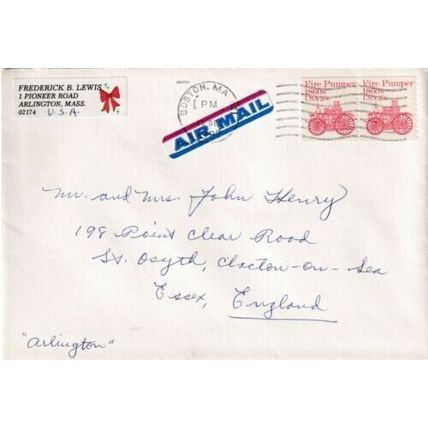 FREDERICK B. LEWIS
1 PIONEER ROAD
ARLINGTON, MASS.
02174 U.S.A.
BOSTON, MA
PM
AIR MAIL
Fire Pumper
1860s
USA 20c
Fire Pumper
1860s
USA 20c
Mr. and Mrs. John Henry
198 Point Clear Road
St. Osyth, Clacton-on-Sea
Essex, England
"Arlington"